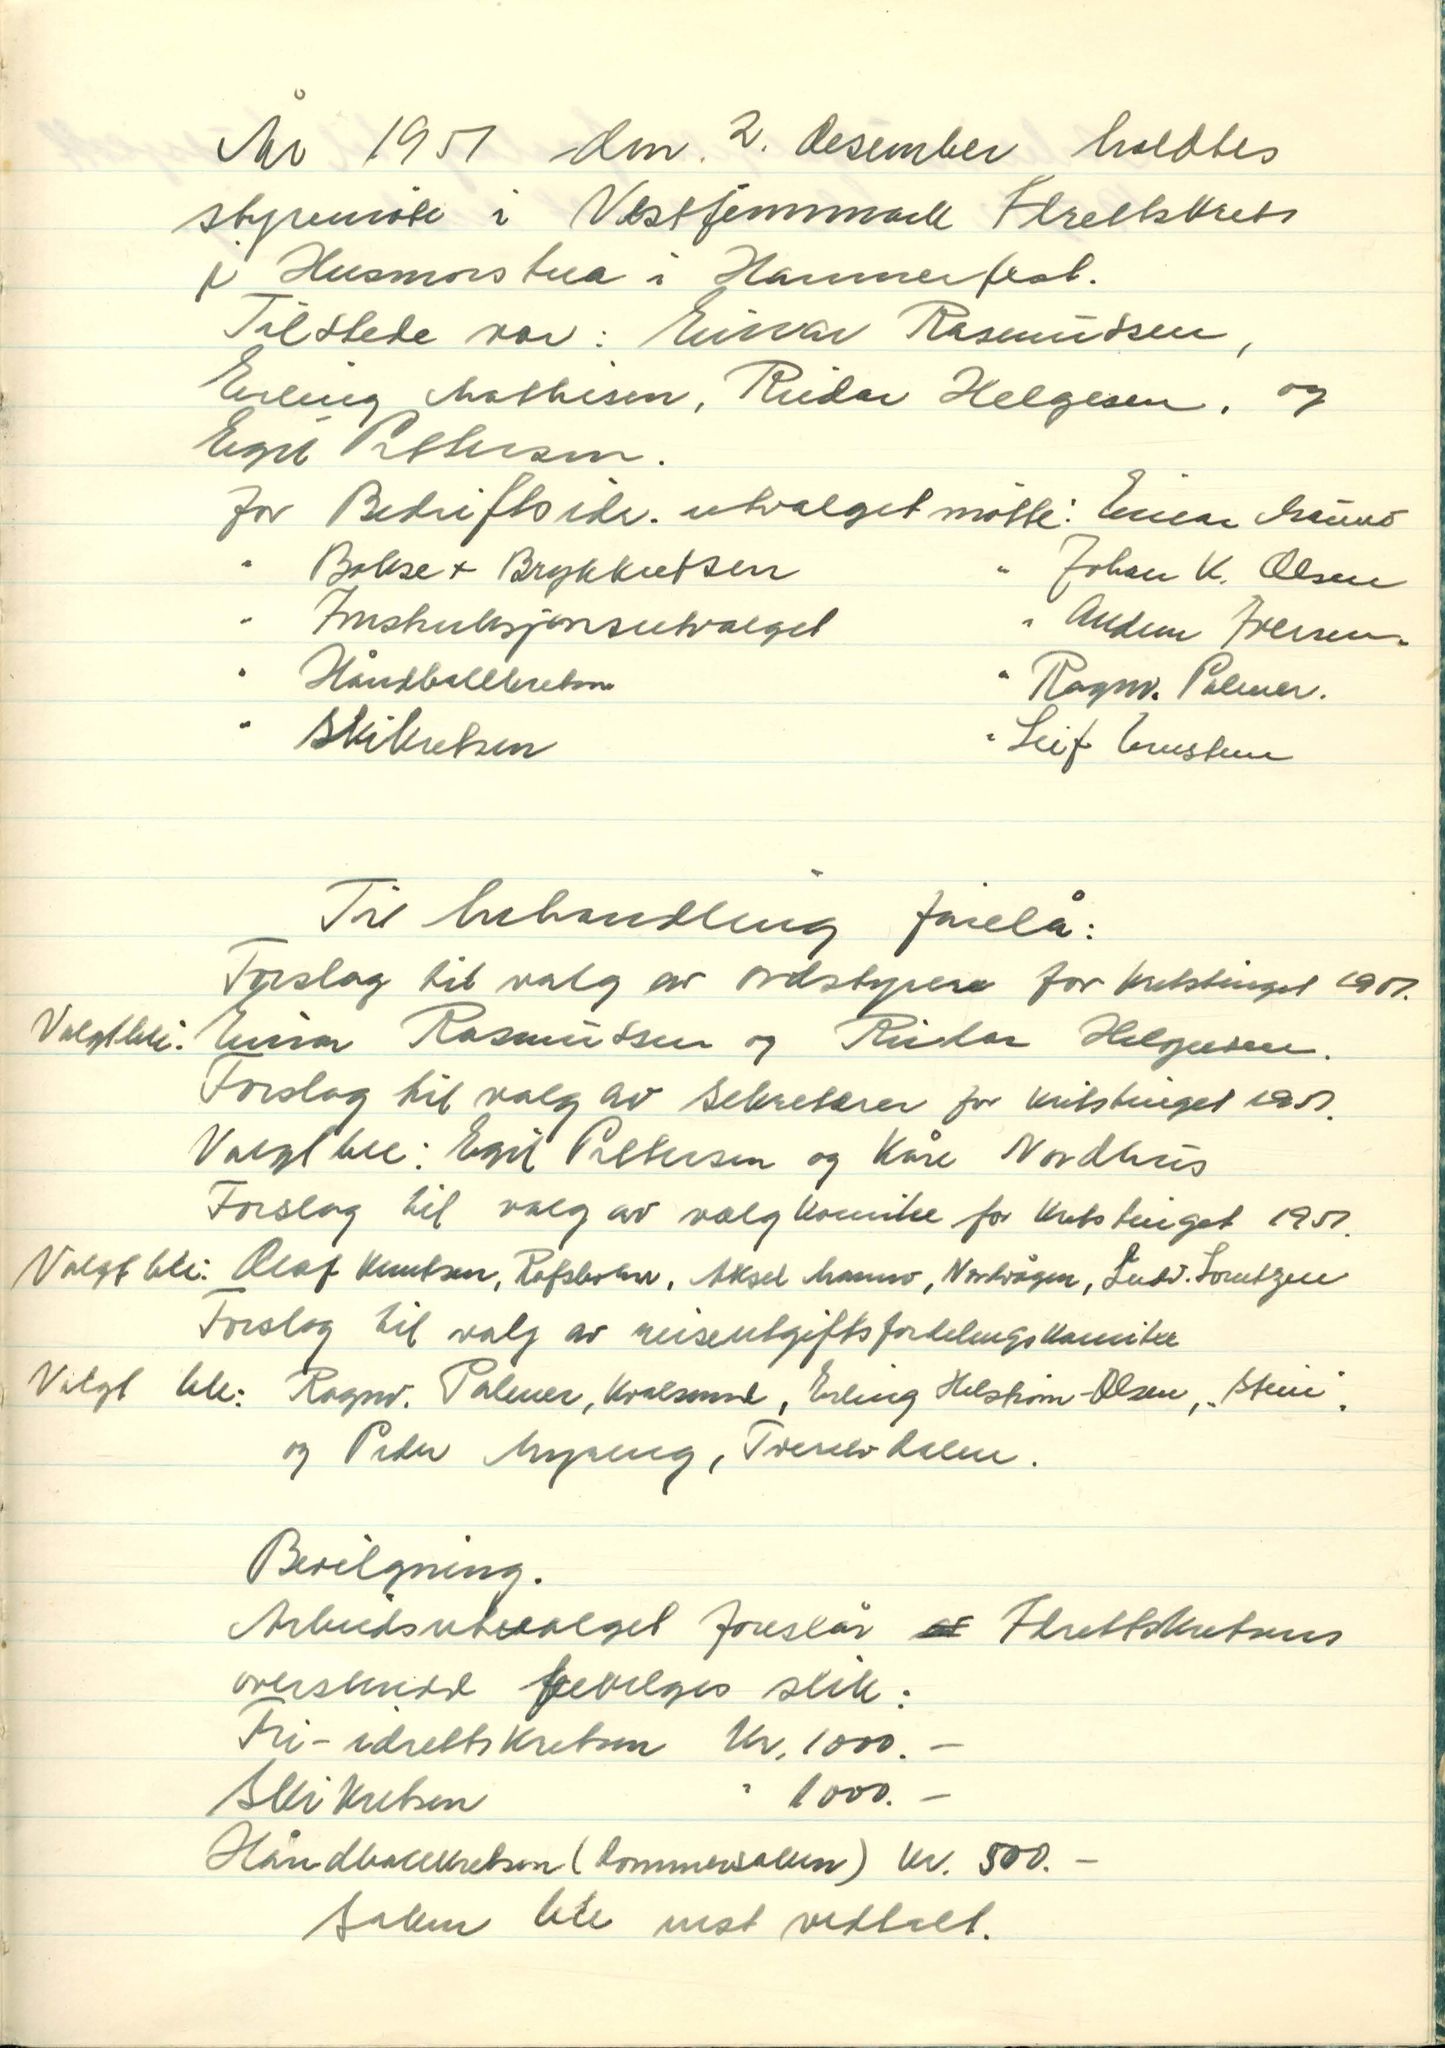 År 1951 den. 2. desember holdtes
styremöte i Vestfinnmark Idrettskrets
på Husmorstua i Hammerfest.
Tilstede var: Einar Rasmussen,
Erling Mathisen, Reidar Helgesen, og
Egil Pettersen.
for Bedriftsidr. utvalget møtte: Einar Mannö
" Bokse + Brytekretsen " Johan K. Olsen
" Instruksjonsutvalget " Iversen.
" Håndballkretsen " Ragnv. Palmer.
" Skikretsen " Leif
Til behandling forelå:
Forslag til valg av ordstyrere for kretstinget 1951.
Valgt ble: Einar Rasmussen og Reidar Helgesen.
Forslag til valg av sekretærer for kretstinget 1951.
Valgt ble: Egil Pettersen og Kåre Nordhus
Forslag til valg av valgkomite for kretstinget 1951.
Valgt ble: Olaf Knutsen, Rafsbotn, Aksel Mannö, Nordvågen, Ludv. Lorentzen
Forslag til valg av reiseutgiftsfordelingskomitee
Valgt ble: Ragnv. Palmer, Kvalsund, Erling Helström-Olsen, "Stein".
og Peder Myreng, Tverrelvdalen.
Bevilgning.
Arbeidsutvalget foreslår at Idrettskretsens
overskudd bevilges slik:
Fri-idrettskretsen Kr. 1000. -
Skikretsen " 1000. -
Håndballkretsen (Dommersaken) kr. 500. -
Saken ble enst vedtatt.